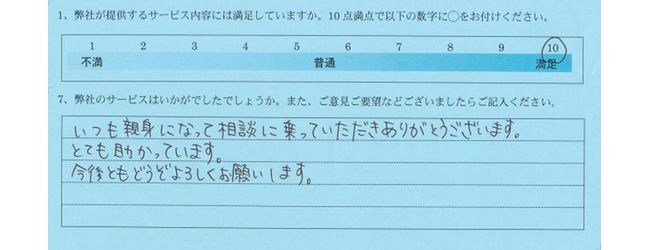 1、弊社が提供するサービス内容には満足していますか。10点満点で以下の数字に○をお付けください。
1 2 3 4 5 6 7 8 9 10
不満 普通 満足
7、弊社のサービスはいかがでしたでしょうか。また、ご意見ご要望などございましたらご記入ください。
いつも親身になって相談に乗っていただきありがとうございます。
とても助かっています。
今後ともどうぞよろしくお願いします。